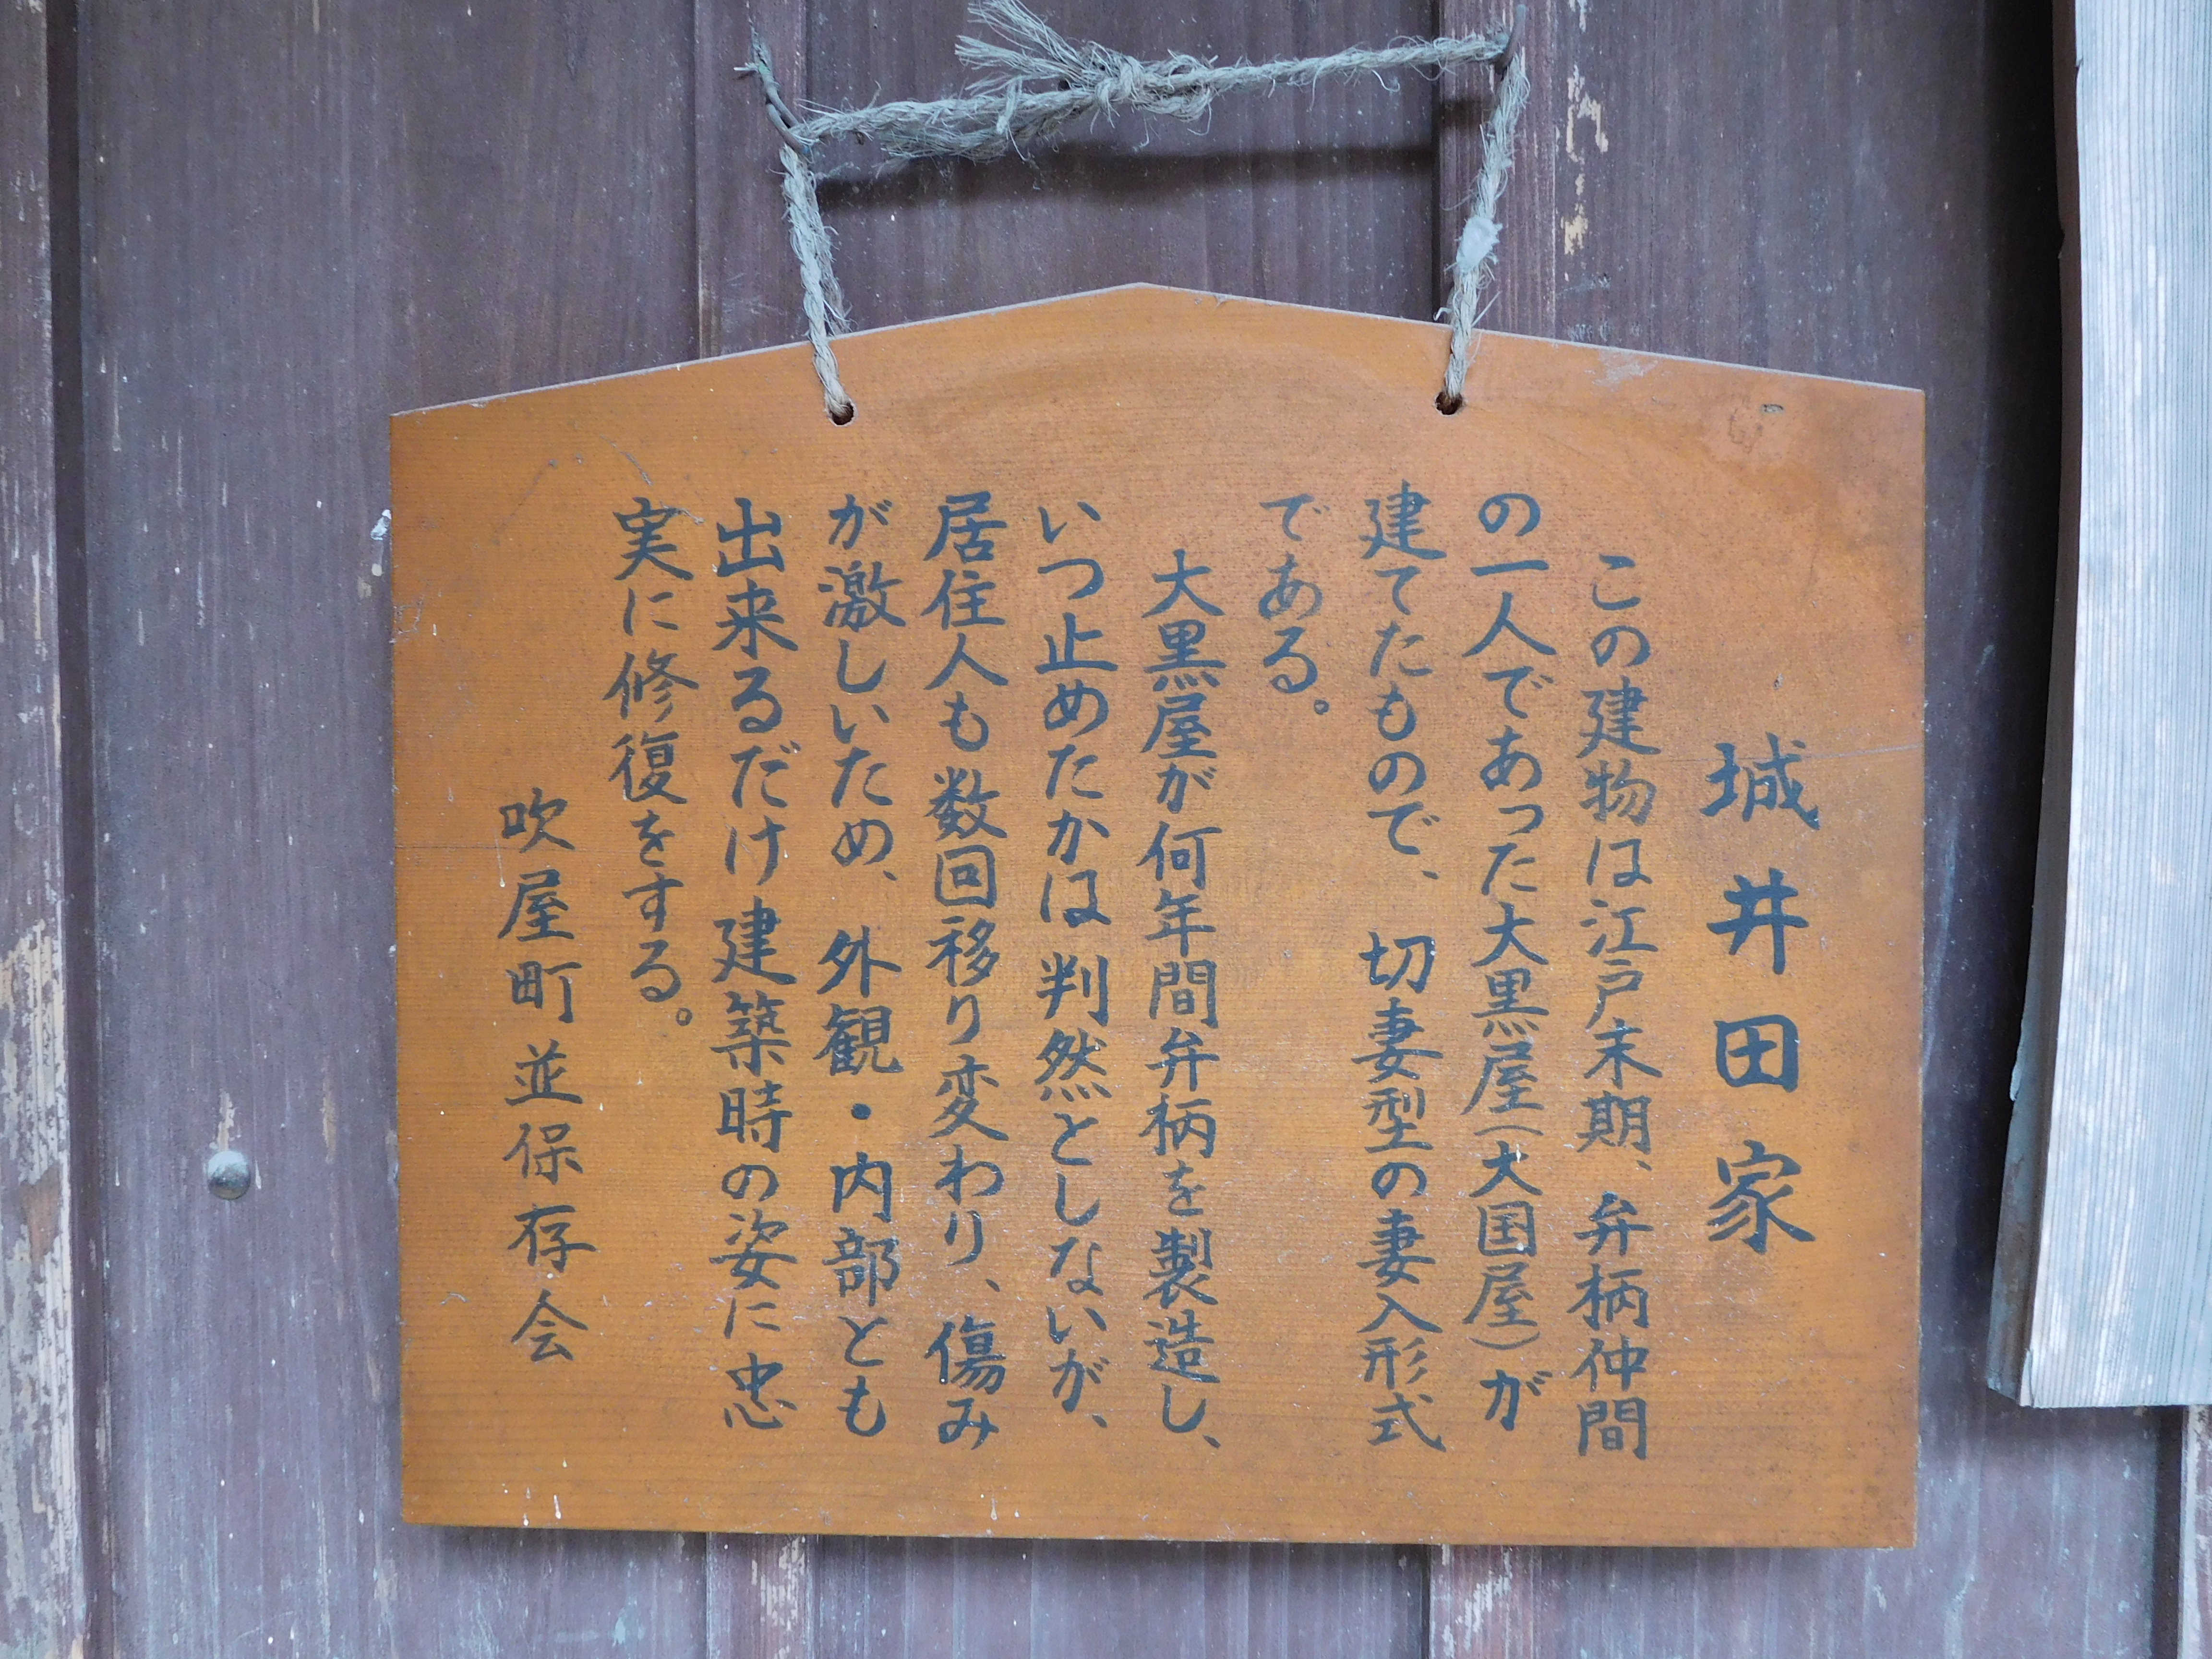 城井田家
この建物は江戸末期、弁柄仲間
の一人であった大黒屋(大国屋)が
建てたもので、切妻型の妻入形式
である。
大黒屋が何年間弁柄を製造し、
いつ止めたかは判然としないが、
居住人も数回移り変わり、傷み
が激しいため、外観・内部とも
出来るだけ建築時の姿に忠
実に修復をする。
吹屋町並保存会